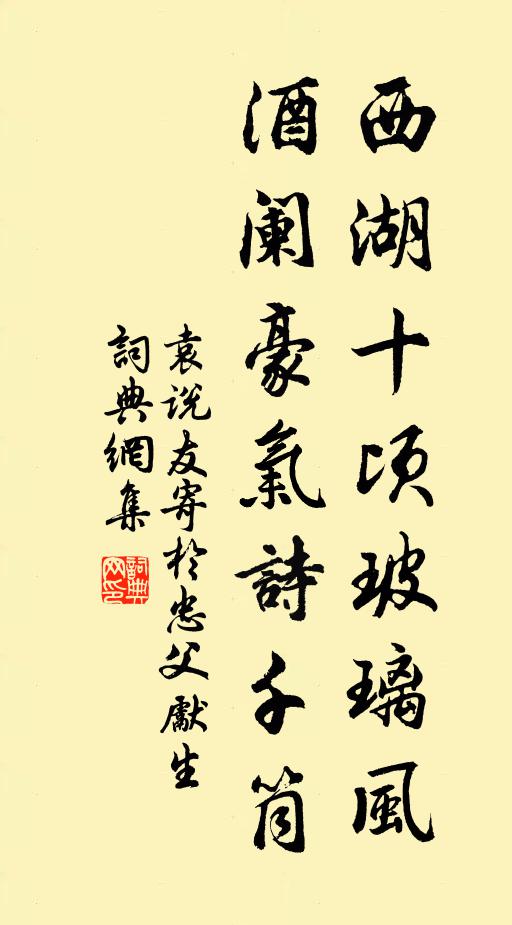 西湖十顷玻璃風
酒阑豪氣詩千筒
袁说友寄於忠父獻生
詞典網集
詞典网印